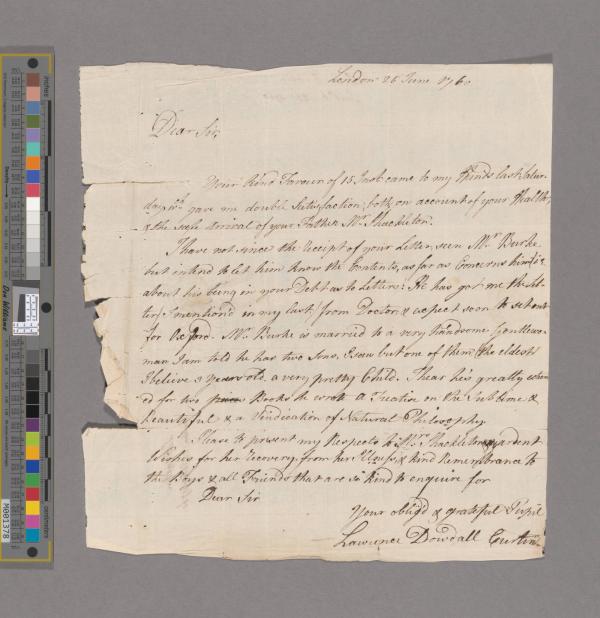 London 26 June 1760
Dear Sir,
Your kind Favour of 15 Inst. came to my Hands last Satur-
day, & gave me double Satisfaction, both on account of your Health,
& the safe arrival of your Father Mr. Shackleton.
I have not since the receipt of your Letter, seen Mr. Burke
but intend to let him know the Contents, as far as Concerns him, &
about his being in your Debt as to Letters: He has got me the let-
ters I mention'd in my last, from Doctor & expect soon to set out
for Oxford. Mr. Burke is married to a very handsome Gentlewo-
man, I am told he has two Sons, I saw but one of them, the eldest
I believe 3 years old, a very pretty Child. I hear he's greatly
for two Books he wrote a Treatise on the Sublime &
beautiful & a Vindication of Natural Philosophy
Please to present my Respects to Mrs. Shackleton, ardent
Wishes for her recovery from her Illness, & kind Remembrance to
the Boys & all Friends that are so kind to enquire for
Dear Sir
Your oblig'd & grateful Pupil
Lawrence Dowdall Curtin
inches
centimeters
Don Williams
M001378